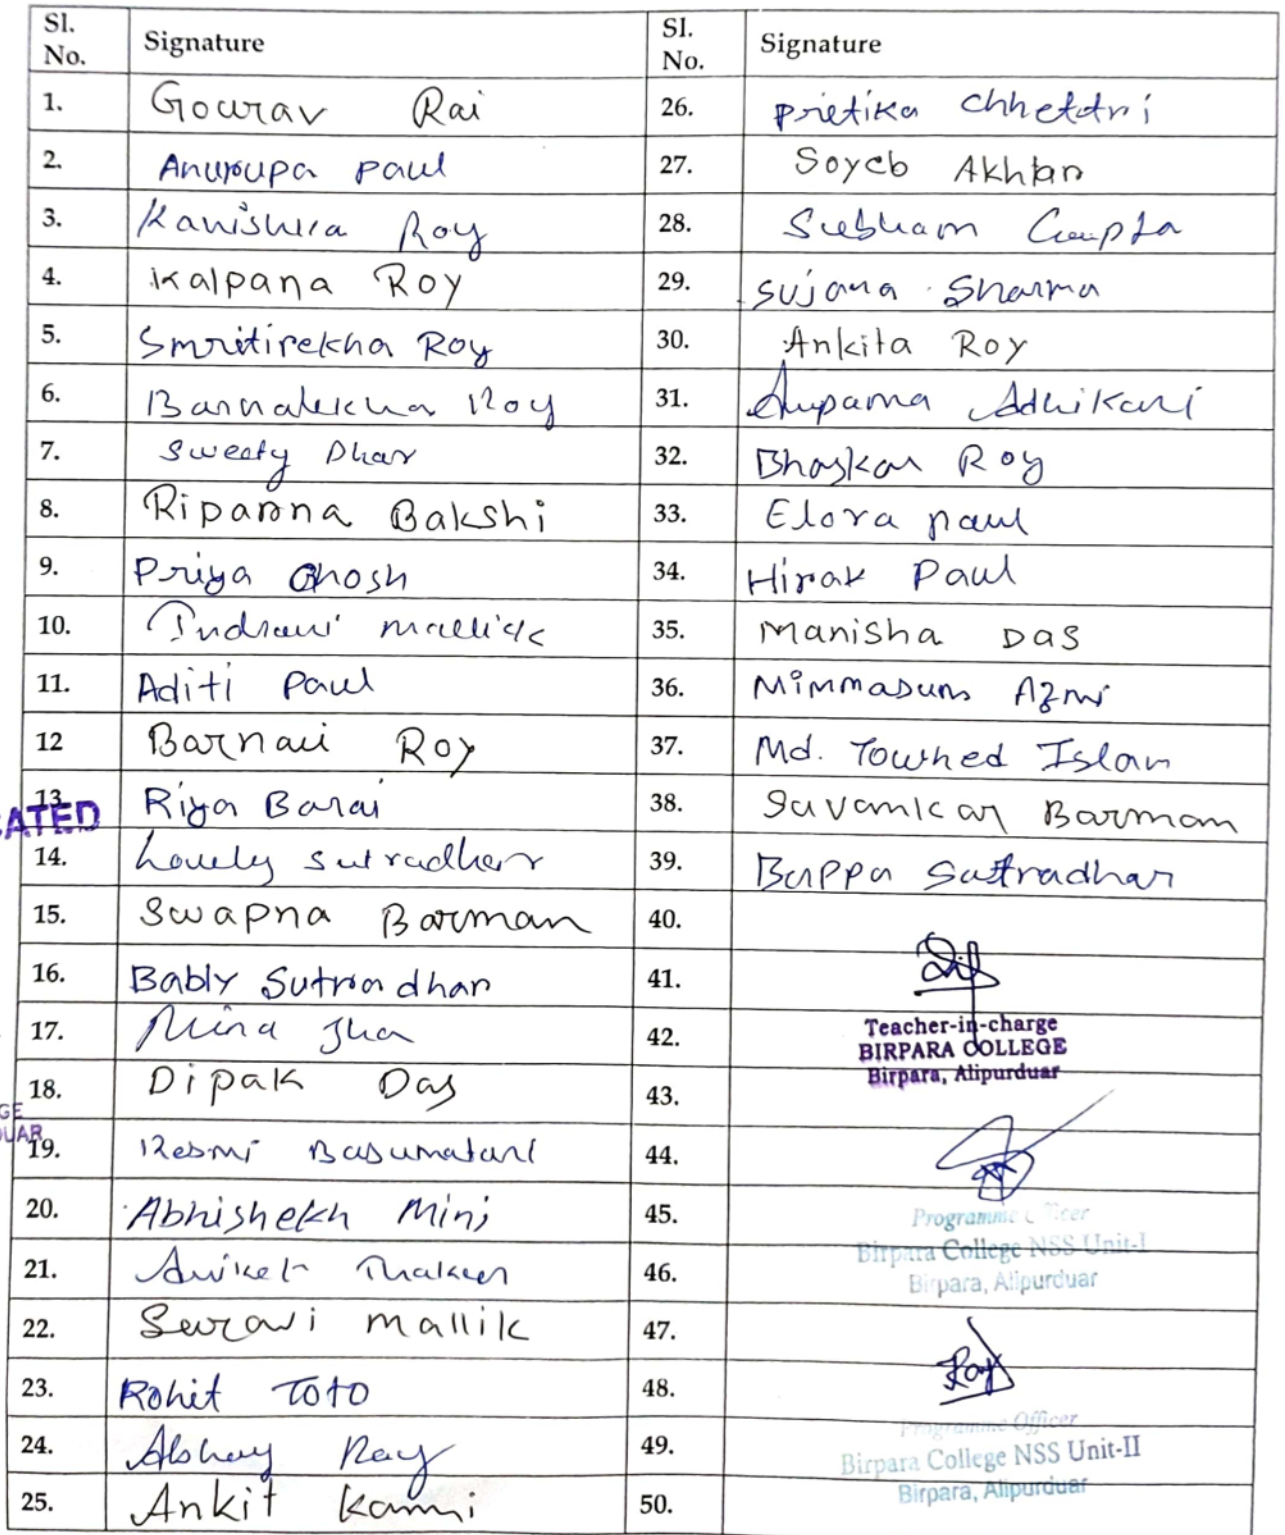 Sl. No. Signature Sl. No. Signature
1. Gourav Rai 26. Pretika Chhettri
2. Anurupa Paul 27. Soyeb Akhtar
3. Kanishka Roy 28. Subham Gupta
4. Kalpana Roy 29. Sujana Sharma
5. Smritirekha Roy 30. Ankita Roy
6. Barnalekha Roy 31. Anupama Adhikari
7. Sweety Dhar 32. Bhaskar Roy
8. Riparna Bakshi 33. Elora Paul
9. Priya Ghosh 34. Hirak Paul
10. Indrani Mallick 35. Manisha Das
11. Aditi Paul 36. Azmi
12 Barnali Roy 37. Md. Towhed Islam
13. Riya Barai 38. Suvankar Barman
ATED
14. Lovely Sutradhar 39. Bappa Sutradhar
15. Swapna Barman 40.
16. Bably Sutradhar 41.
17. Mina Jha 42. Teacher-in-charge
BIRPARA COLLEGE
18. Dipak Das 43. Birpara, Alipurduar
GE
UAR
19. Resmi Basumatari 44.
20. Abhishekh Minj 45. Programme Officer
Birpara College NSS Unit-I
21. Aniket Thakur 46. Birpara, Alipurduar
22. Suravi Mallik 47.
23. Rohit Toto 48. Roy
Programme Officer
24. Ray 49. Birpara College NSS Unit-II
25. Ankit Kami 50. Birpara, Alipurduar